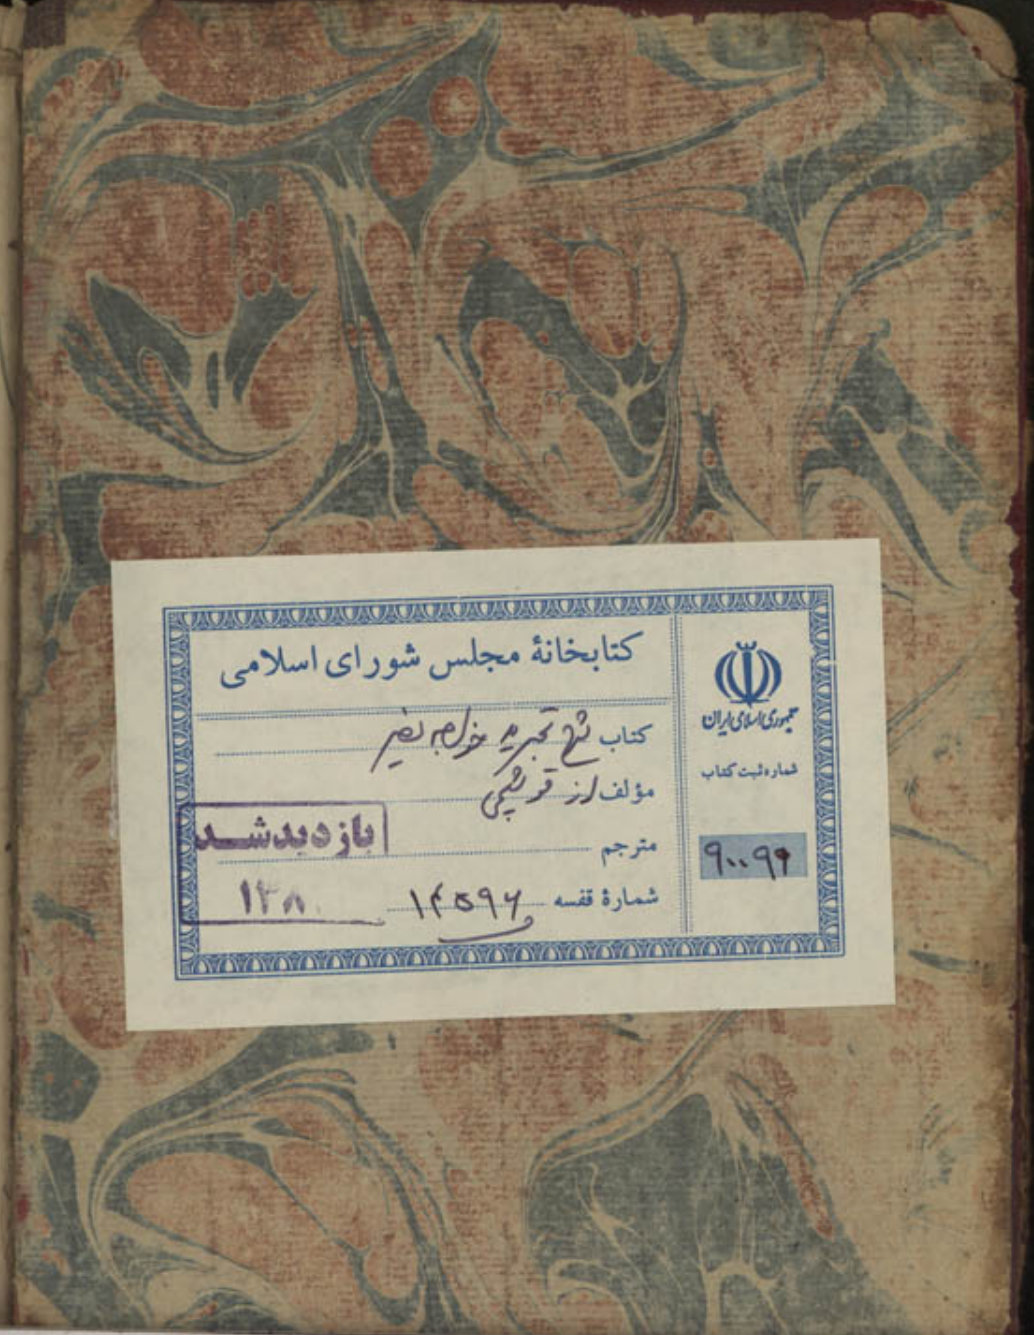 کتابخانهٔ مجلس شورای اسلامی
کتاب شرح تجرید خواجه نصیر
مؤلف از قوشچی
مترجم
شمارهٔ قفسه ۱۴۵۹۶
بازدید شد
۱۳۸
جمهوری اسلامی ایران
شماره ثبت کتاب